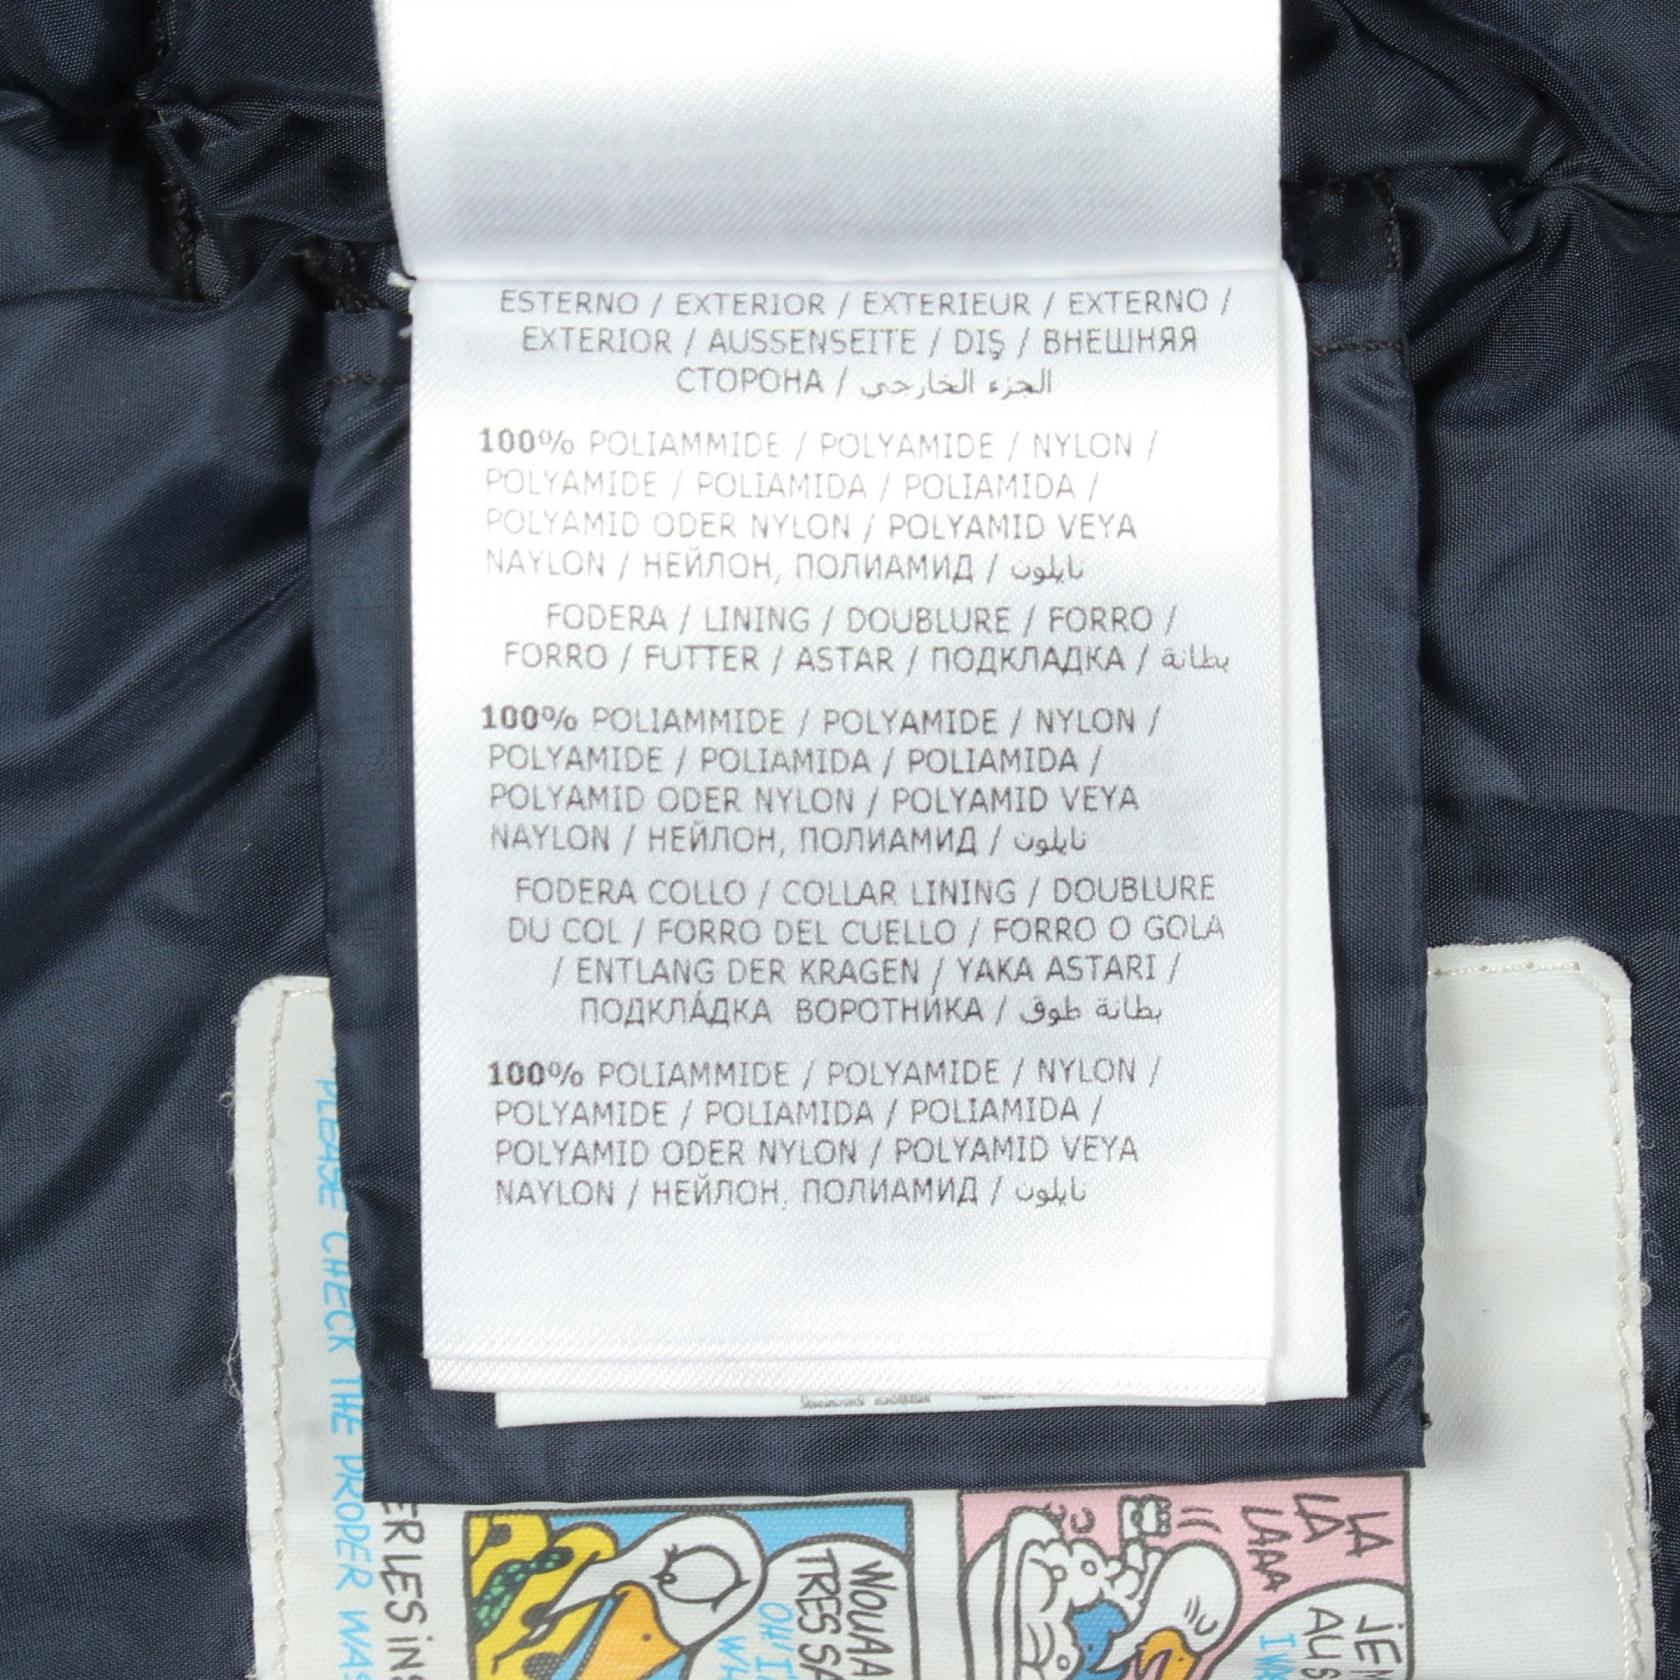 ESTERNO / EXTERIOR / EXTERIEUR / EXTERNO /
EXTERIOR / AUSSENSEITE / DIŞ / ВНЕШНЯЯ
СТОРОНА / الجزء الخارجي
100% POLIAMMIDE / POLYAMIDE / NYLON /
POLYAMIDE / POLIAMIDA / POLIAMIDA /
POLYAMID ODER NYLON / POLYAMID VEYA
NAYLON / НЕЙЛОН, ПОЛИАМИД / نايلون
FODERA / LINING / DOUBLURE / FORRO /
FORRO / FUTTER / ASTAR / ПОДКЛАДКА / بطانة
100% POLIAMMIDE / POLYAMIDE / NYLON /
POLYAMIDE / POLIAMIDA / POLIAMIDA /
POLYAMID ODER NYLON / POLYAMID VEYA
NAYLON / НЕЙЛОН, ПОЛИАМИД / نايلون
FODERA COLLO / COLLAR LINING / DOUBLURE
DU COL / FORRO DEL CUELLO / FORRO O GOLA
/ ENTLANG DER KRAGEN / YAKA ASTARI /
ПОДКЛА́ДКА ВОРОТНИ́КА / بطانة طوق
100% POLIAMMIDE / POLYAMIDE / NYLON /
POLYAMIDE / POLIAMIDA / POLIAMIDA /
POLYAMID ODER NYLON / POLYAMID VEYA
NAYLON / НЕЙЛОН, ПОЛИАМИД / نايلون
PLEASE CHECK THE PROPER WAS
ER LES iNS
WOUAA
TRES SA
OH! I
WA
LA
LA
LAAA
JE M
AUS
I WA